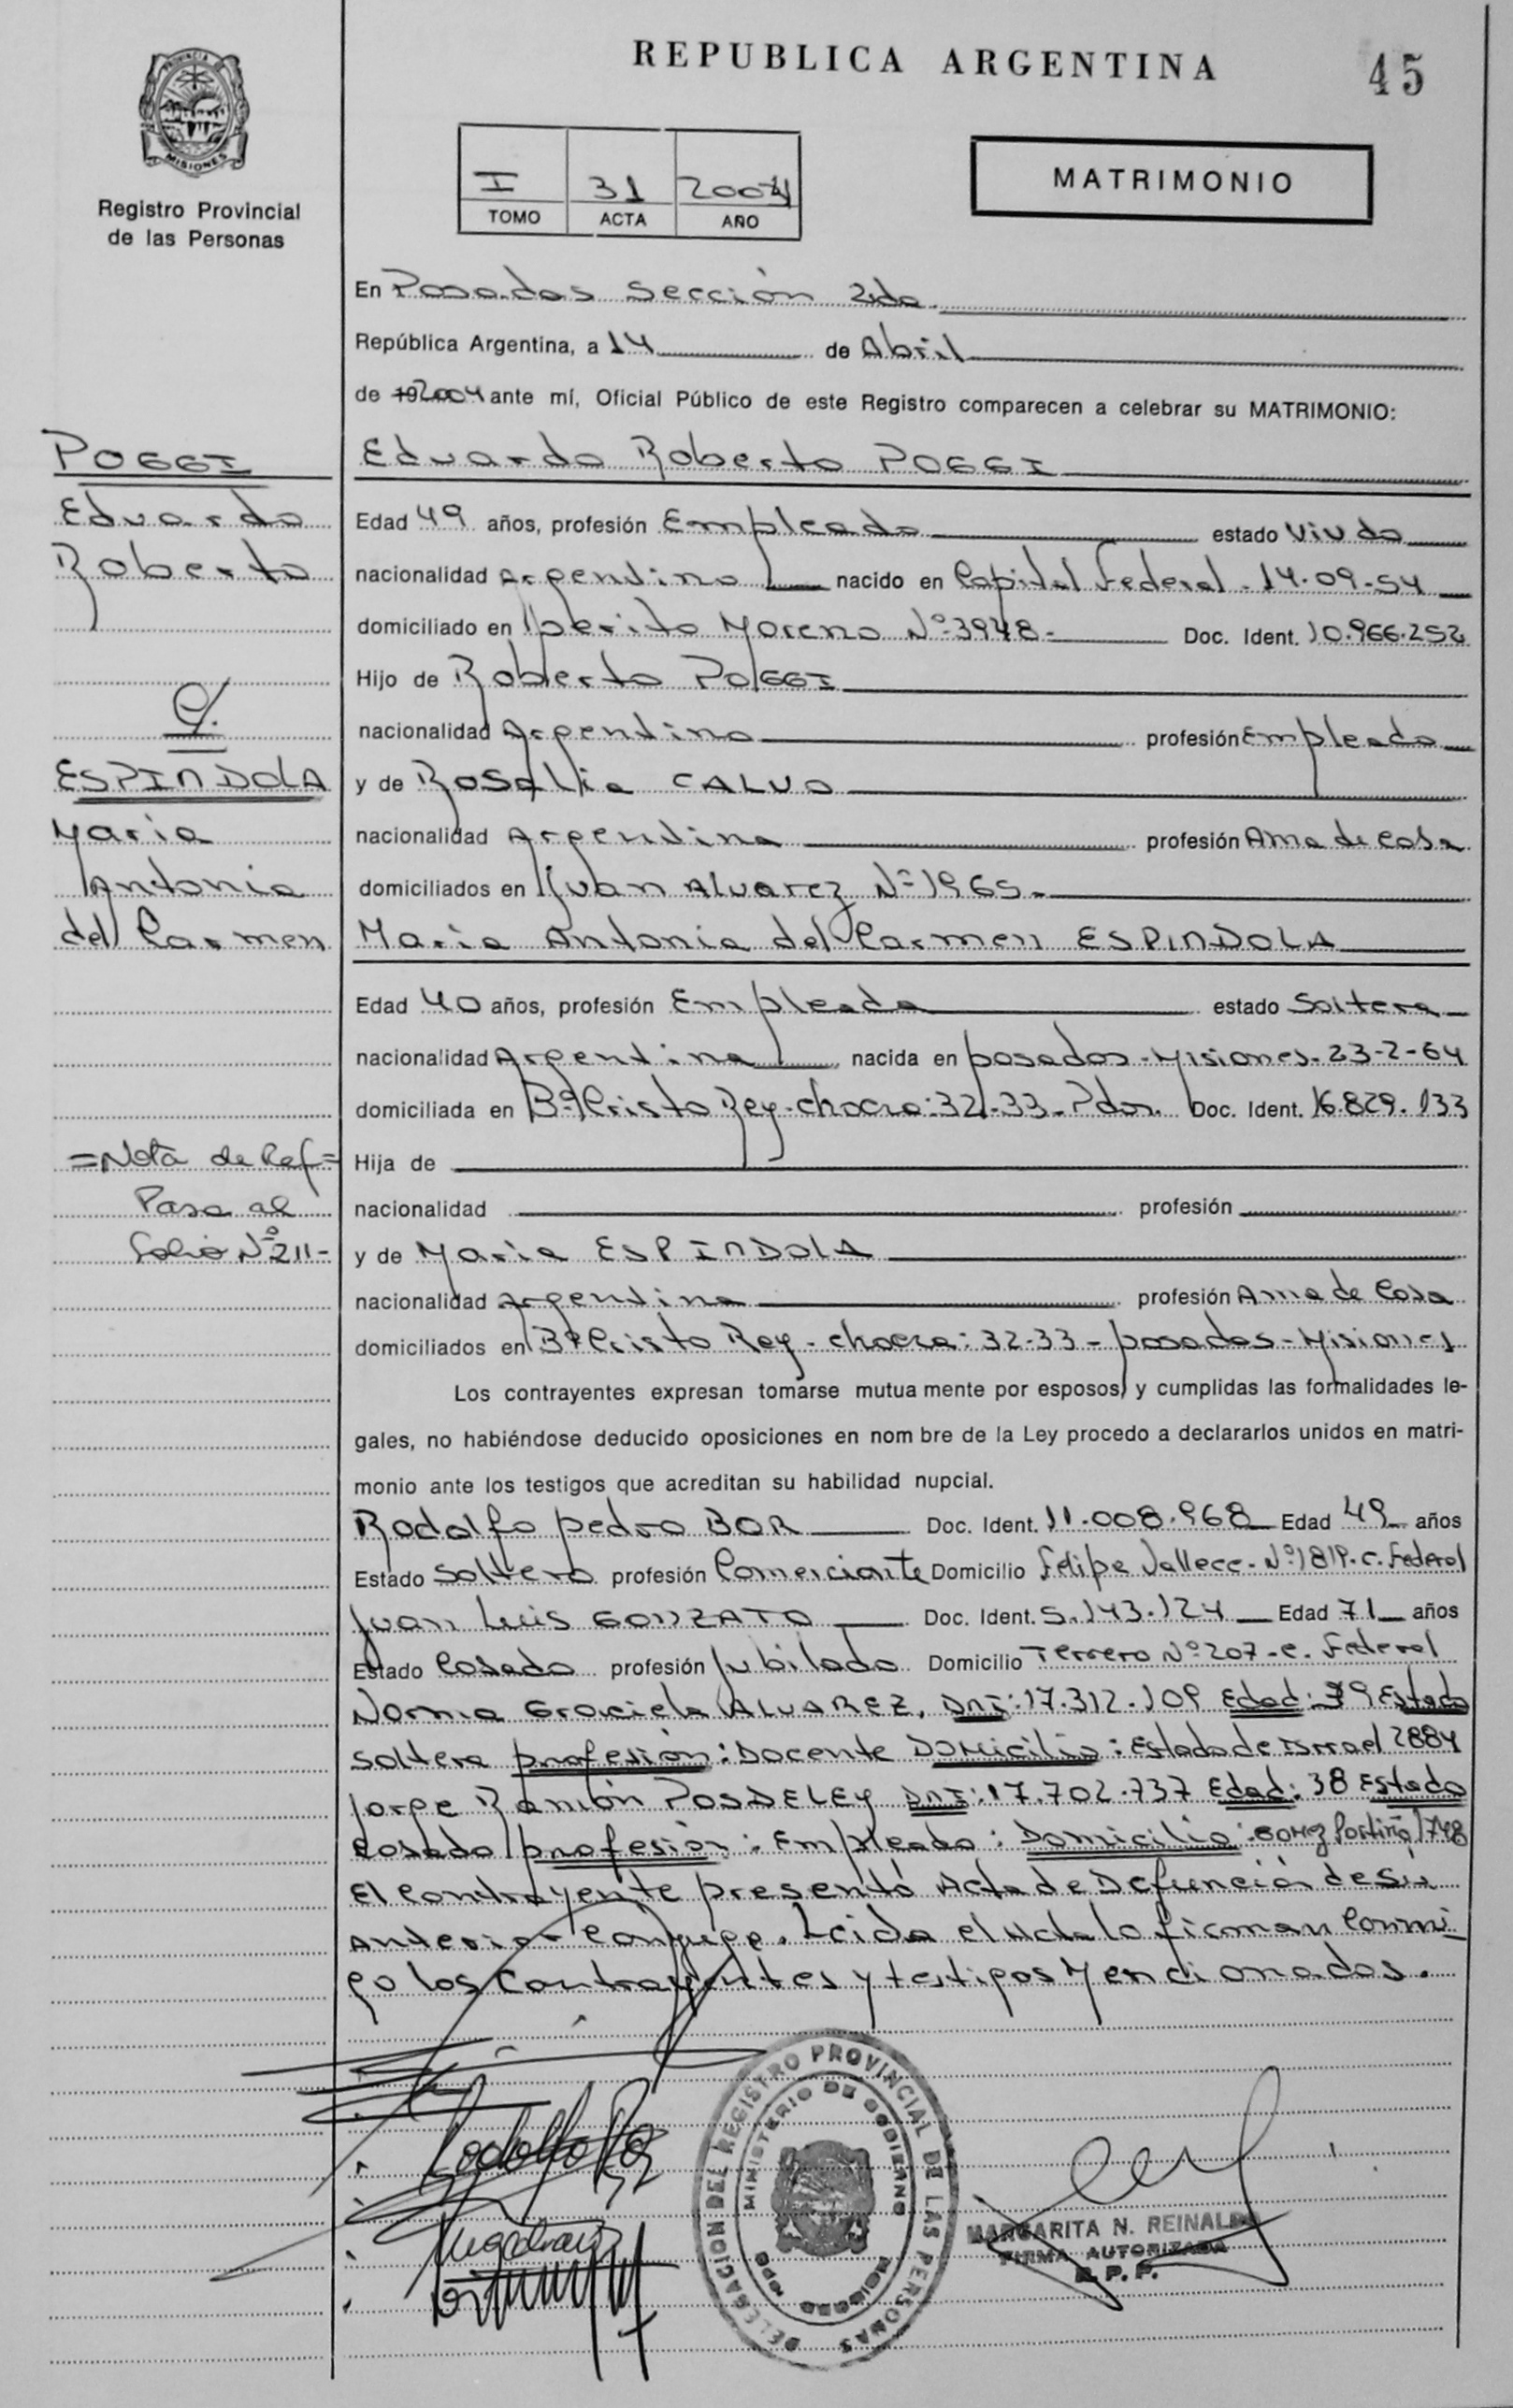 REPUBLICA ARGENTINA
45
PROVINCIA DE
MISIONES
Registro Provincial
de las Personas
I 31 2004
TOMO ACTA AÑO
MATRIMONIO
En Posadas Sección 2da.
República Argentina, a 14 de Abril
de 19 2004 ante mí, Oficial Público de este Registro comparecen a celebrar su MATRIMONIO:
POGGI
Eduardo
Roberto
c/.
ESPINDOLA
Maria
Antonia
del Carmen
=Nota de Ref=
Pasa al
Folio Nº 211-
Eduardo Roberto POGGI
Edad 49 años, profesión Empleado estado Viudo
nacionalidad Argentino nacido en Capital Federal - 14-09-54
domiciliado en Perito Moreno Nº 3948- Doc. Ident. 10.966.252
Hijo de Roberto POGGI
nacionalidad Argentino profesión Empleado
y de Rosalia CALVO
nacionalidad Argentina profesión Ama de Casa
domiciliados en Juan Alvarez Nº 1965-
Maria Antonia del Carmen ESPINDOLA
Edad 40 años, profesión Empleada estado Soltera
nacionalidad Argentina nacida en posadas - Misiones - 23-2-64
domiciliada en Bº Cristo Rey - chacra: 32-33 - Pdas. Doc. Ident. 16.829.133
Hija de
nacionalidad profesión
y de Maria ESPINDOLA
nacionalidad Argentina profesión Ama de Casa
domiciliados en Bº Cristo Rey - chacra: 32-33 - posadas - Misiones
Los contrayentes expresan tomarse mutua mente por esposos y cumplidas las formalidades le-
gales, no habiéndose deducido oposiciones en nom bre de la Ley procedo a declararlos unidos en matri-
monio ante los testigos que acreditan su habilidad nupcial.
Rodolfo pedro BOR Doc. Ident. 11.008.968 Edad 49 años
Estado Soltero profesión Comerciante Domicilio Felipe Vallece - Nº 1819. c. Federal
Juan Luis GONZATO Doc. Ident. 5.143.124 Edad 71 años
Estado Casado profesión Jubilado Domicilio Terrero Nº 207 - c. Federal
Norma Graciela ALVAREZ, DNI: 17.312.109 Edad: 39 Estado
soltera profesión: Docente Domicilio: Estado de Israel 2884
Jorge Ramón POSDELEY DNI: 17.702.737 Edad: 38 Estado
casado profesión: Empleado: Domicilio: Portiño 1748
El Contrayente presentó Acta de Defunción de su
Anterior Conyuge. Leida el Acta lo firman Conmi
go los Contrayentes y testigos Mencionados.
DELEGACION DEL REGISTRO PROVINCIAL DE LAS PERSONAS
MINISTERIO DE GOBIERNO
MARGARITA N. REINALDO
FIRMA AUTORIZADA
R. P. P.